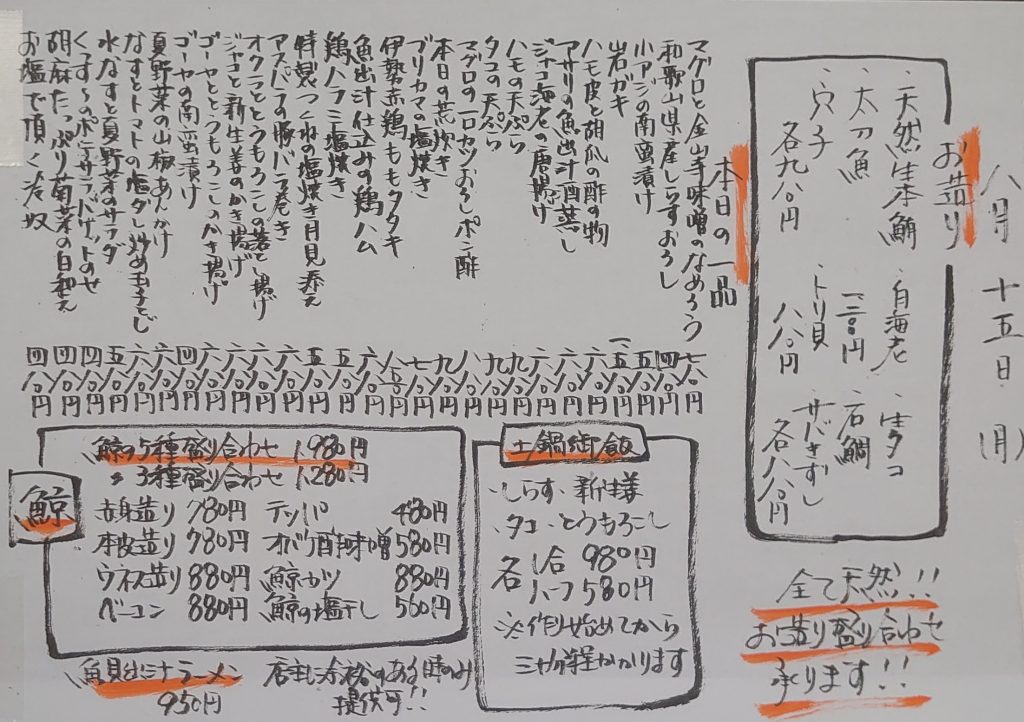 八月十五日(月)
お造り
・天然生本鮪
・太刀魚
・穴子
各九八〇円
・白海老
一二八〇円
・トリ貝
八八〇円
・生タコ
・石鯛
・サバきずし
各八八〇円
全て天然!!
お造り盛り合わせ
承ります!!
本日の一品
マグロと金山寺味噌のなめろう 七八〇円
和歌山県産しらすおろし 四八〇円
小アジの南蛮漬け 五八〇円
岩ガキ
ハモ皮と胡瓜の酢の物 六八〇円
アサリの魚出汁酒蒸し 六八〇円
ジャコ海老の唐揚げ 六八〇円
ハモの天ぷら 九八〇円
タコの天ぷら 九八〇円
マグロの一口カツおろしポン酢 八八〇円
本日の荒炊き 九八〇円
ブリカマの塩焼き 七八〇円
伊勢赤鶏ももタタキ
魚出汁仕込みの鶏ハム 六八〇円
鶏ハラミ塩焼き 五八〇円
特製つくねの塩焼き月見添え 五八〇円
アスパラの豚バラ巻き 六八〇円
オクラととうもろこしの落とし揚げ 六八〇円
ジャコと新生姜のかき揚げ 六八〇円
ゴーヤととうもろこしのかき揚げ 六八〇円
ゴーヤの南蛮漬け 四八〇円
夏野菜の山椒あんかけ 六八〇円
なすとトマトの塩ダレ炒め玉子とじ 六八〇円
水なすと夏野菜のサラダ 五八〇円
くずし〜のポテサラバゲットのせ 四八〇円
胡麻たっぷり菊菜の白和え 四八〇円
お塩で頂く冷奴 四八〇円
土鍋御飯
・しらす・新生姜
・タコ・とうもろこし
各 1合 980円
ハーフ 580円
※作り始めてから
三十分程かかります
鯨
鯨の5種盛り合わせ 1,980円
〃 3種盛り合わせ 1,280円
赤身造り 780円 テッパ 480円
本皮造り 780円 オバケ酢味噌 580円
ウネス造り 880円 鯨カツ 880円
ベーコン 880円 鯨の塩干し 560円
魚貝出汁ラーメン
950円
店主に余裕のある時のみ
提供可!!